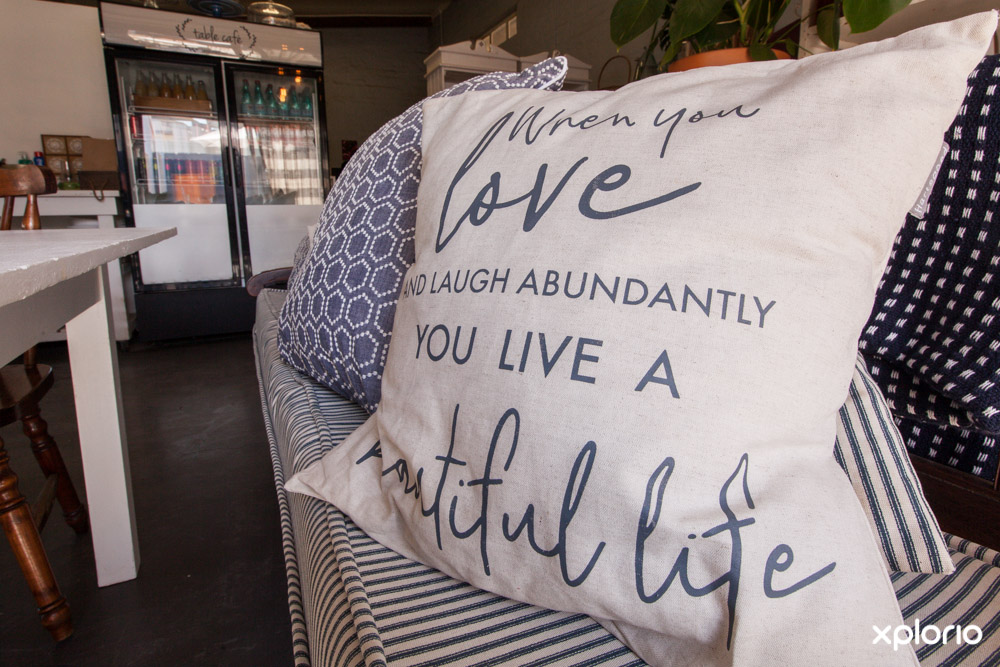 table cafe
When you
love
AND LAUGH ABUNDANTLY
YOU LIVE A
beautiful life
xplorio